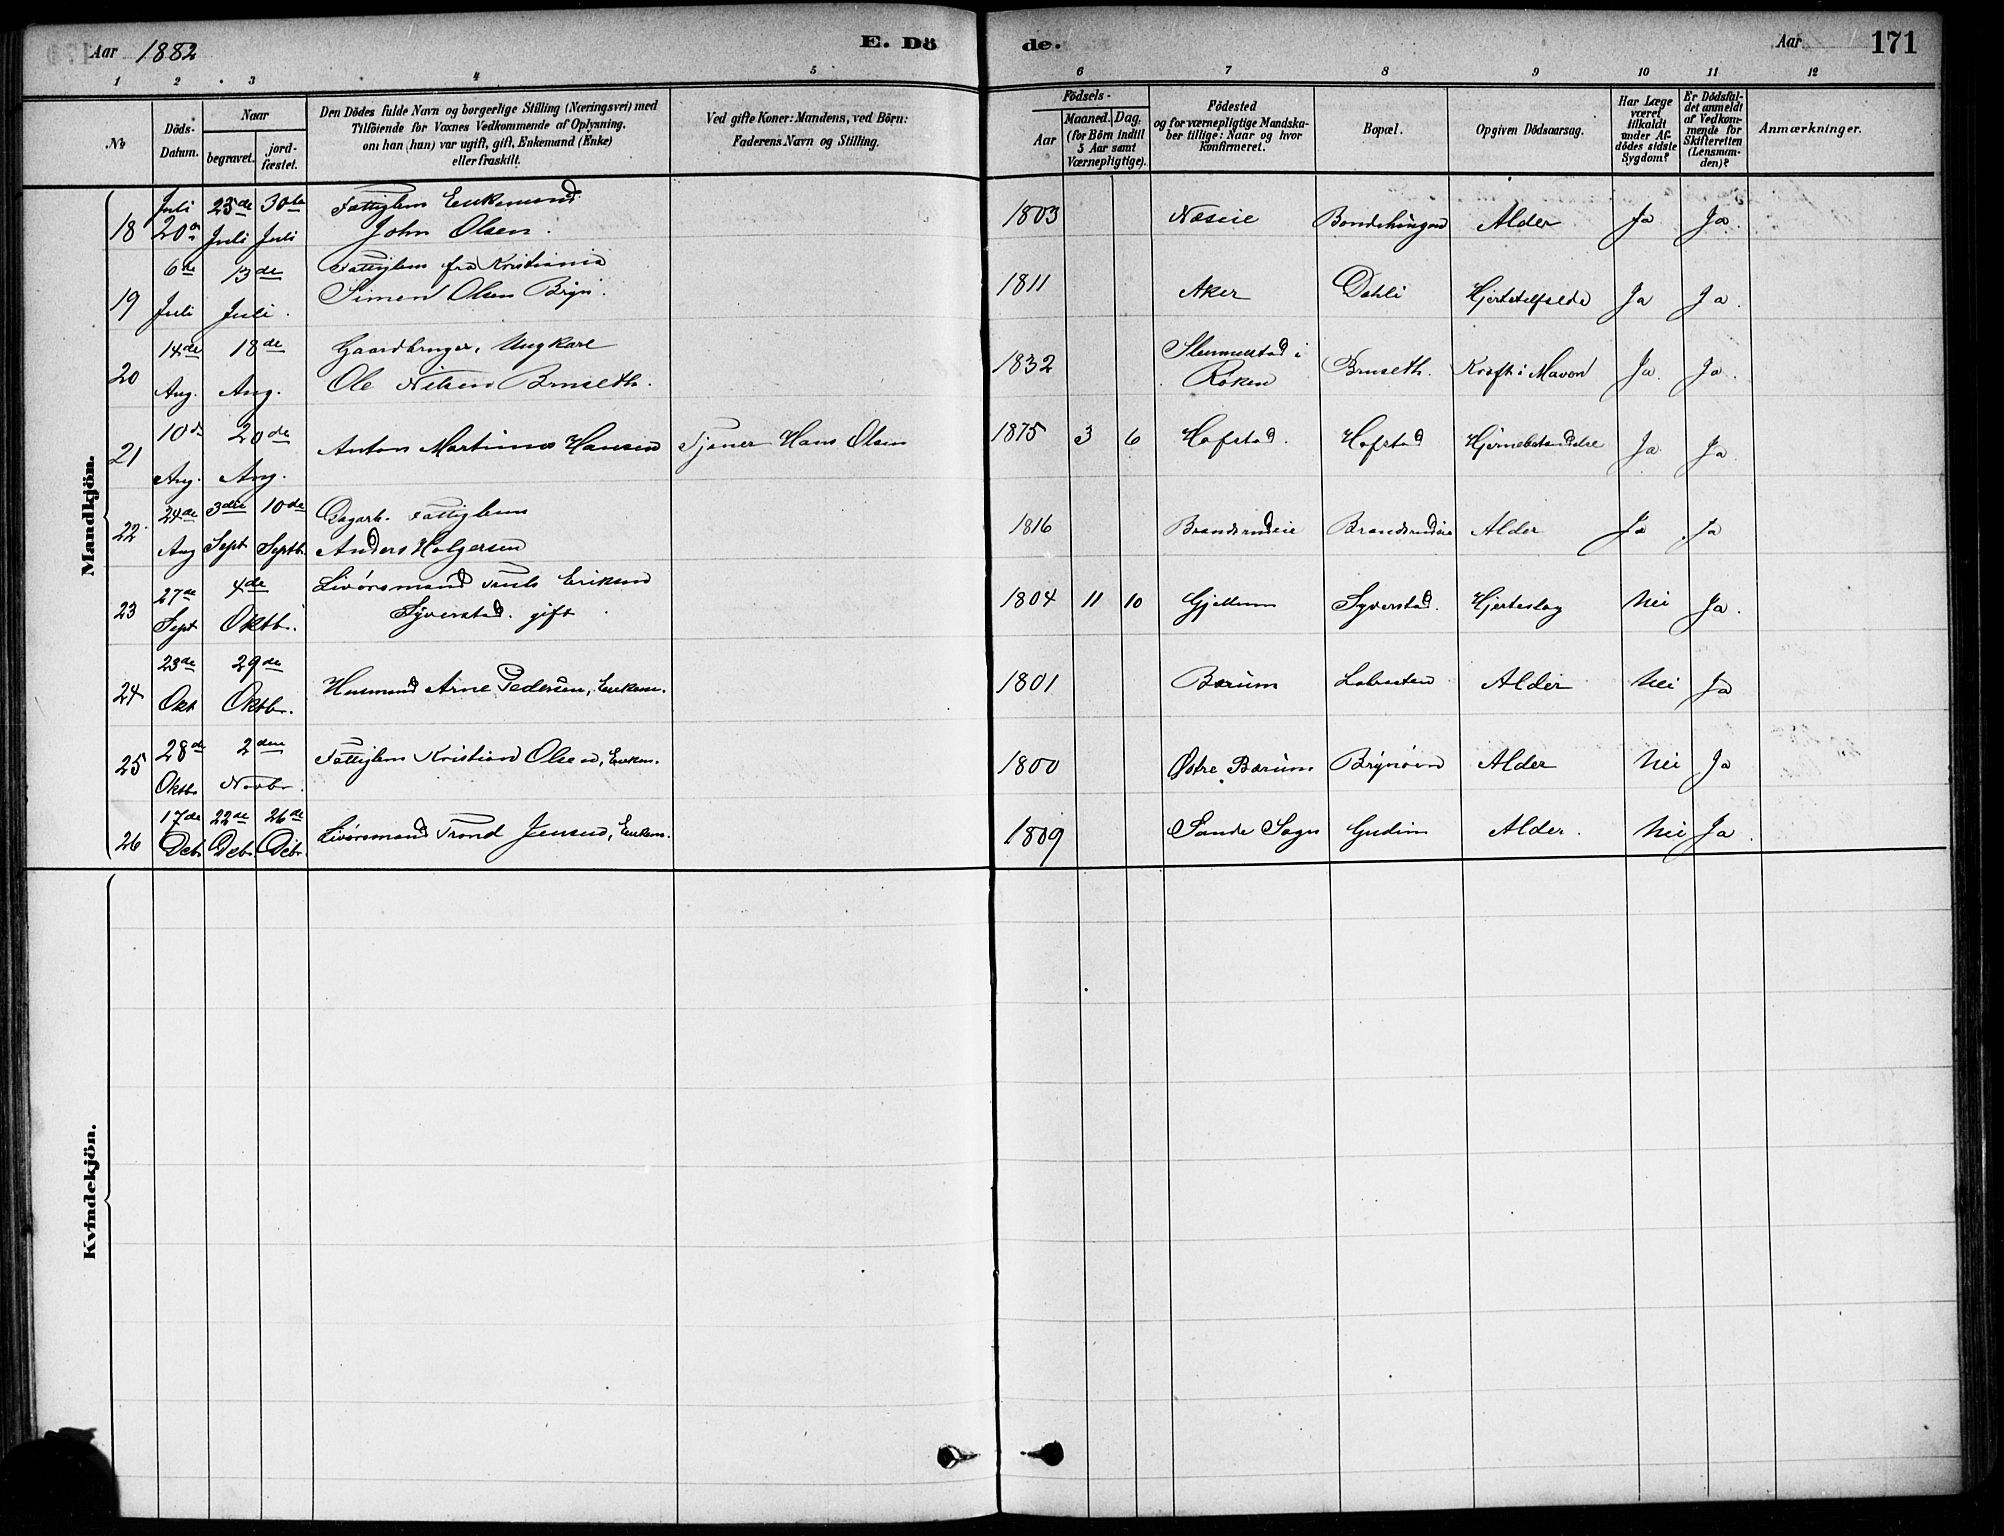 Aar 1882 E. Dö de. Aar 171
1 2 3 4 5 6 7 8 9 10 11 12
No
Döds-Datum.
Naar
begravet.
jordfæstet.
Den Dödes fulde Navn og borgerlige Stilling (Næringsvei) med
Tilföiende for Voxnes Vedkommende af Oplysning,
om han (hun) var ugift, gift, Enkemand (Enke)
eller fraskilt.
Ved gifte Koner: Mandens, ved Börn:
Faderens Navn og Stilling.
Födsels-
Aar
Maaned. Dag.
(for Börn indtil
5 Aar samt
Værnepligtige).
Födested
og for værnepligtige Mandska-
ber tillige: Naar og hvor
konfirmeret.
Bopæl.
Opgiven Dödsaarsag.
Har Læge
været
tilkaldt
under Af-
dödes sidste
Sygdom?
Er Dödsfal-
det anmeldt
af Vedkom-
mende for
Skifteretten
(Lensman-
den)?
Anmærkninger.
Mandkjön.
Juli 23de 30te Fattiglem Enkemand
18 20de Juli Juli John Olsen. 1803 Næseie Alder Ja Ja
6de 13de Fattiglem fra Kristiania
19 Juli Juli. Simen Olsen Bryn. 1811 Aker Dahli Ja Ja.
14de 18de Gaardbruger, Ungkarl
20 Aug. Aug. Ole Nilsen Bruseth. 1832 Røken Bruseth. Kræft i Maven Ja. Ja.
10de 20de
21 Aug. Aug. Anton Martinus Hansen Tjener Hans Olsen 1875 3 6 Hofstad. Hofstad Hjernebetændelse Ja Ja
24de 3die 10de Dagarb. Fattiglem
22 Aug Sept Septb. Anders Holgersen 1816 Brandsrudeie Brandsrudeie Alder Ja Ja
27de 4de Livørsmand Truls Eriksen
23 Sept Oktb. Syverstad. gift 1804 11 10 Gjellum Syverstad. Hjerteslag Nei Ja.
23de 29de
24 Okt Oktb. Husmand Arne Pedersen, Enkem. 1801 Bærum Alder Nei Ja
28de 2den
25 Oktb. Novbr. Fattiglem Kristian Olsen, Enkem. 1800 Østre Bærum Brynøen Alder Nei Ja
17de 22de 26de
26 Deb. Deb. Deb. Livørsmand Trond Jensen, Enkem. 1809 Sande Sogn Gudim Alder. Nei Ja.
Kvindekjön.